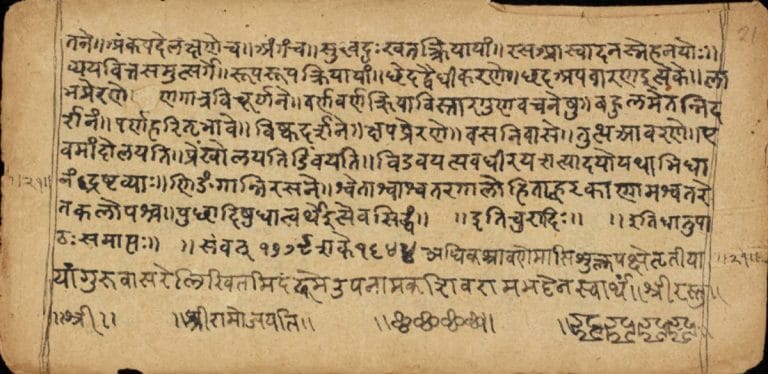 21
तने॥अंकपदेलक्षणेच॥अंगच॥सुखदुःखतत्क्रियायां॥रसआस्वादनस्नेहनयोः॥
व्ययवित्तसमुत्सर्गे॥रूपरूपक्रियायां॥छेदद्वैधीकरणे॥छदअपवारणइत्येके॥ला
भप्रेरणे॥ व्रणगात्रविचूर्णने॥वर्णवर्णक्रियाविस्तारगुणवचनेषु॥बहुलमेतन्निद
र्शनं॥पर्णहरितभावे॥विष्कदर्शने॥क्षपप्रेरणे॥वसनिवासे॥तुत्थआवरणे॥ए
वमांदोलयति॥प्रेंखोलयतिडिंवयति॥विडंवयत्यवधीरयत्यादयोयथाभिधा
नंद्रष्टव्याः॥णिङंगान्निरसने॥श्वेताश्वाश्वतरगालोडिताह्वरकाणामश्वतरे
तकलोपश्च॥पुच्छादिषुधात्वर्थेइत्येवसिद्धं॥ ॥इतिचुरादिः॥ ॥इतिधातुपा
ठःसमाप्तः॥ ॥संवत् १७७९शके१६४४ अधिकश्रावणेमासिशुक्लपक्षेतृतीया
यांगुरूवासरेलिखितमिदं उपनामकशिवरामभट्टेनस्वार्थं॥श्रीरस्तु॥
॥श्री॥ ॥श्रीरामोजयति॥
॥२१॥
॥२१॥